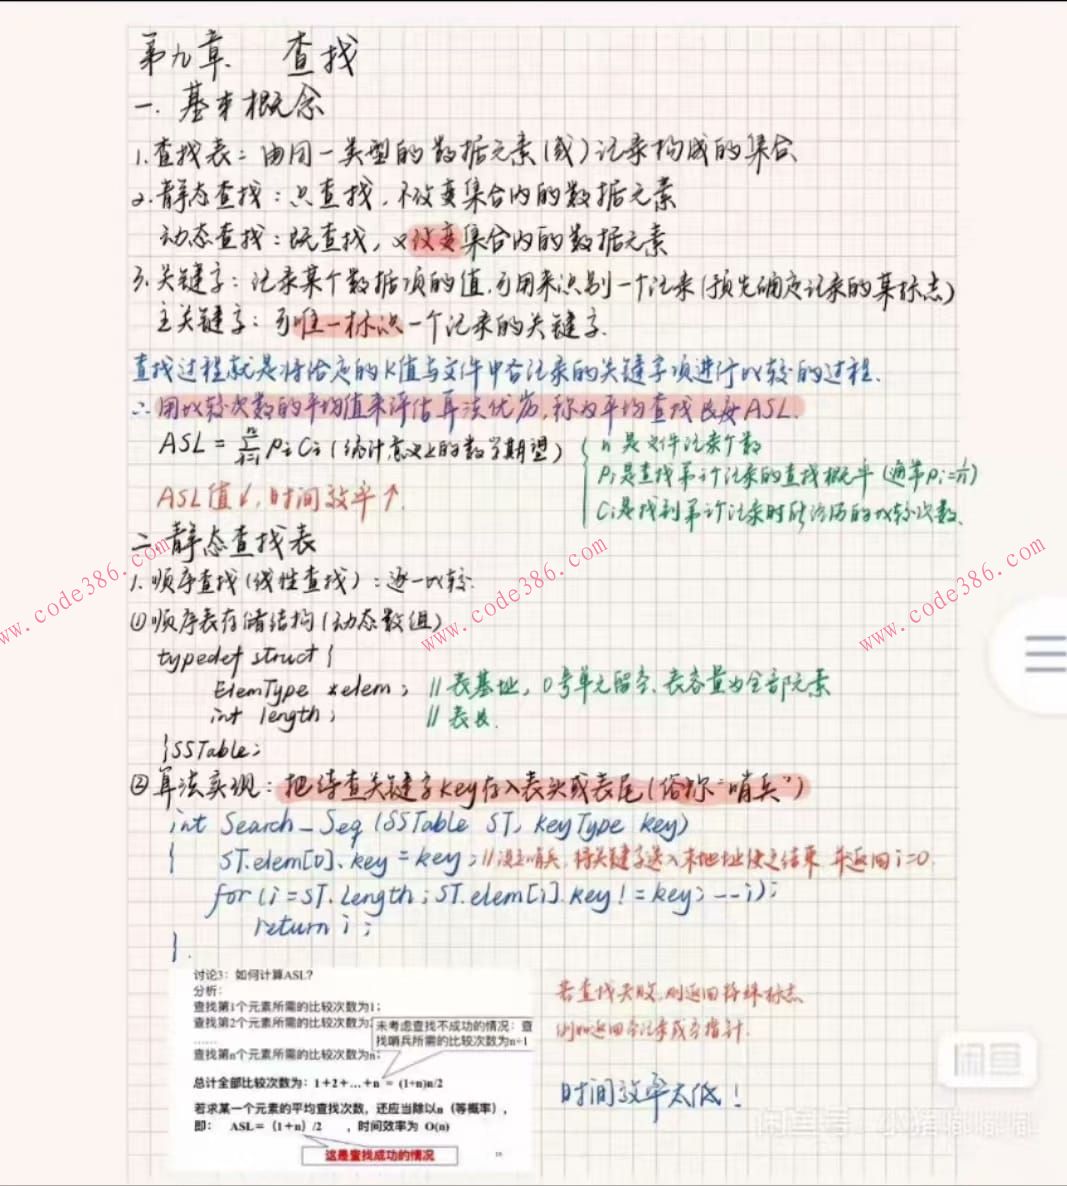 第九章 查找
一. 基本概念
1.查找表：由同一类型的数据元素(或)记录构成的集合
2.静态查找：只查找，不改变集合内的数据元素
动态查找：既查找，又改变集合内的数据元素
3.关键字：记录某个数据项的值,可用来识别一个记录(预先确定记录的某标志)
主关键字：可唯一标识一个记录的关键字.
查找过程就是将给定的K值与文件中各记录的关键字项进行比较的过程.
∴用比较次数的平均值来评估算法优劣,称为平均查找长度ASL.
ASL = n∑i=1 Pi Ci (统计意义上的数学期望)
n 是文件记录个数
Pi是查找第i个记录的查找概率 (通常Pi=1/n)
Ci是找到第i个记录时所经历的比较次数.
ASL值↓,时间效率↑.
二.静态查找表
1.顺序查找(线性查找)：逐一比较
①顺序表存储结构(动态数组)
typedef struct {
ElemType *elem; //表基址，0号单元留空.表容量为全部元素
int length; //表长.
}SSTable;
②算法实现：把待查关键字key存入表头或表尾(俗称"哨兵")
int Search_Seq (SSTable ST, KeyType key)
{ ST.elem[0].key = key; //设立哨兵,将关键字送入 地址使之结束 并返回i=0.
for (i=ST.length; ST.elem[i].key != key; --i);
return i;
}.
讨论3：如何计算ASL?
分析：
查找第1个元素所需的比较次数为1；
查找第2个元素所需的比较次数为2
未考虑查找不成功的情况：查
找哨兵所需的比较次数为n+1
……
查找第n个元素所需的比较次数为n；
总计全部比较次数为：1+2+…+n = (1+n)n/2
若求某一个元素的平均查找次数，还应当除以n（等概率），
即： ASL=（1+n）/2 ，时间效率为 O(n)
这是查找成功的情况
若查找失败,则返回特殊标志
例如返回空记录或空指针.
时间效率太低！
www.code386.com
www.code386.com
www.code386.com
闲鱼